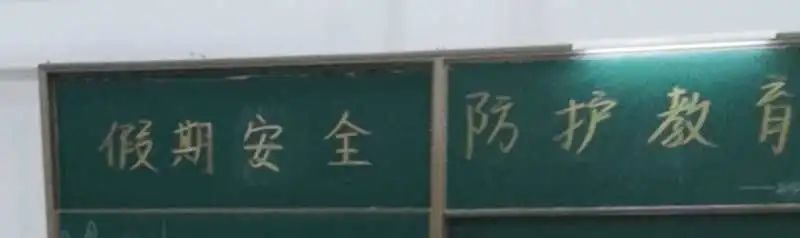 假期安全防护教育